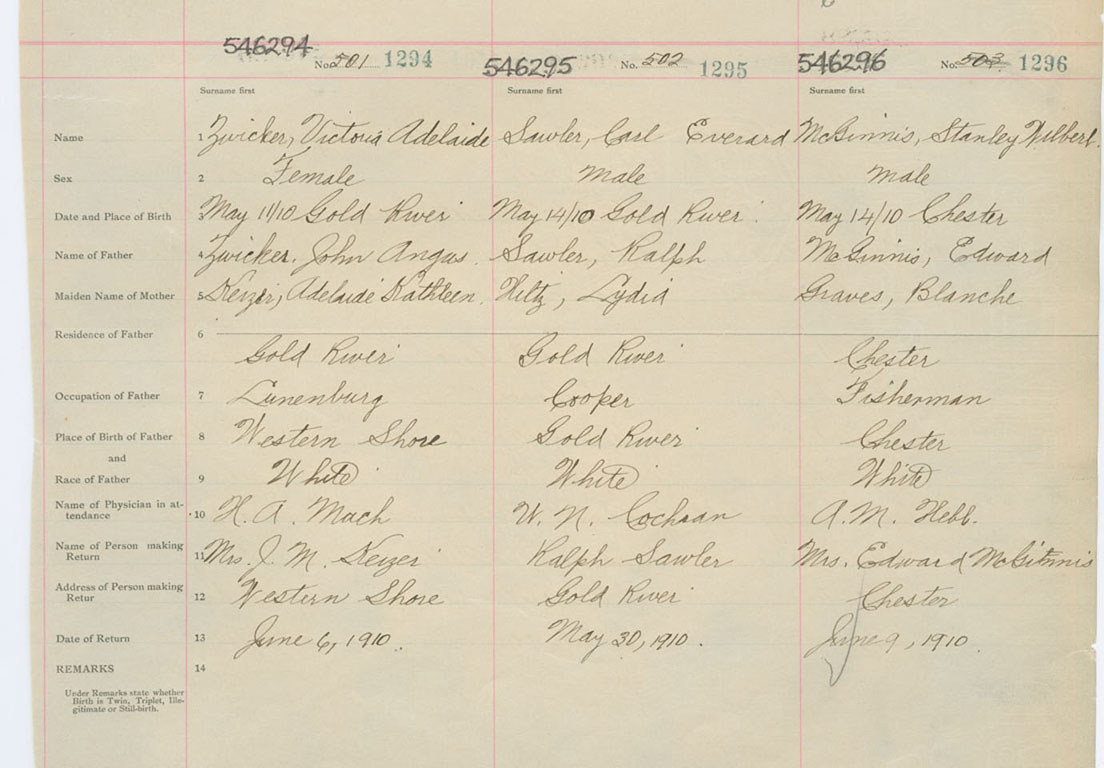 546294 No. 501 1294 546295 No. 502 1295 546296 No. 503 1296
Surname first Surname first Surname first
Name 1 Zwicker, Victoria Adelaide Sawler, Carl Everard McGinnis, Stanley Wilbert.
Sex 2 Female Male Male
Date and Place of Birth 3 May 11/10 Gold River May 14/10 Gold River May 14/10 Chester
Name of Father 4 Zwicker, John Angus. Sawler, Ralph McGinnis, Edward
Maiden Name of Mother 5 Keizer, Adelaide Kathleen. Hiltz, Lydia Graves, Blanche
Residence of Father 6
Gold River Gold River Chester
Occupation of Father 7 Lunenburg Cooper Fisherman
Place of Birth of Father 8 Western Shore Gold River Chester
and
Race of Father 9 White White White
Name of Physician in at-
tendance 10 H. A. March W. N. Cochran A. M. Hebb.
Name of Person making
Return 11 Mrs. J. M. Keizer Ralph Sawler Mrs. Edward McGinnis
Address of Person making
Retur 12 Western Shore Gold River Chester
Date of Return 13 June 6, 1910. May 30, 1910. June 9, 1910.
REMARKS 14
Under Remarks state whether
Birth is Twin, Triplet, Ille-
gitimate or Still-birth.